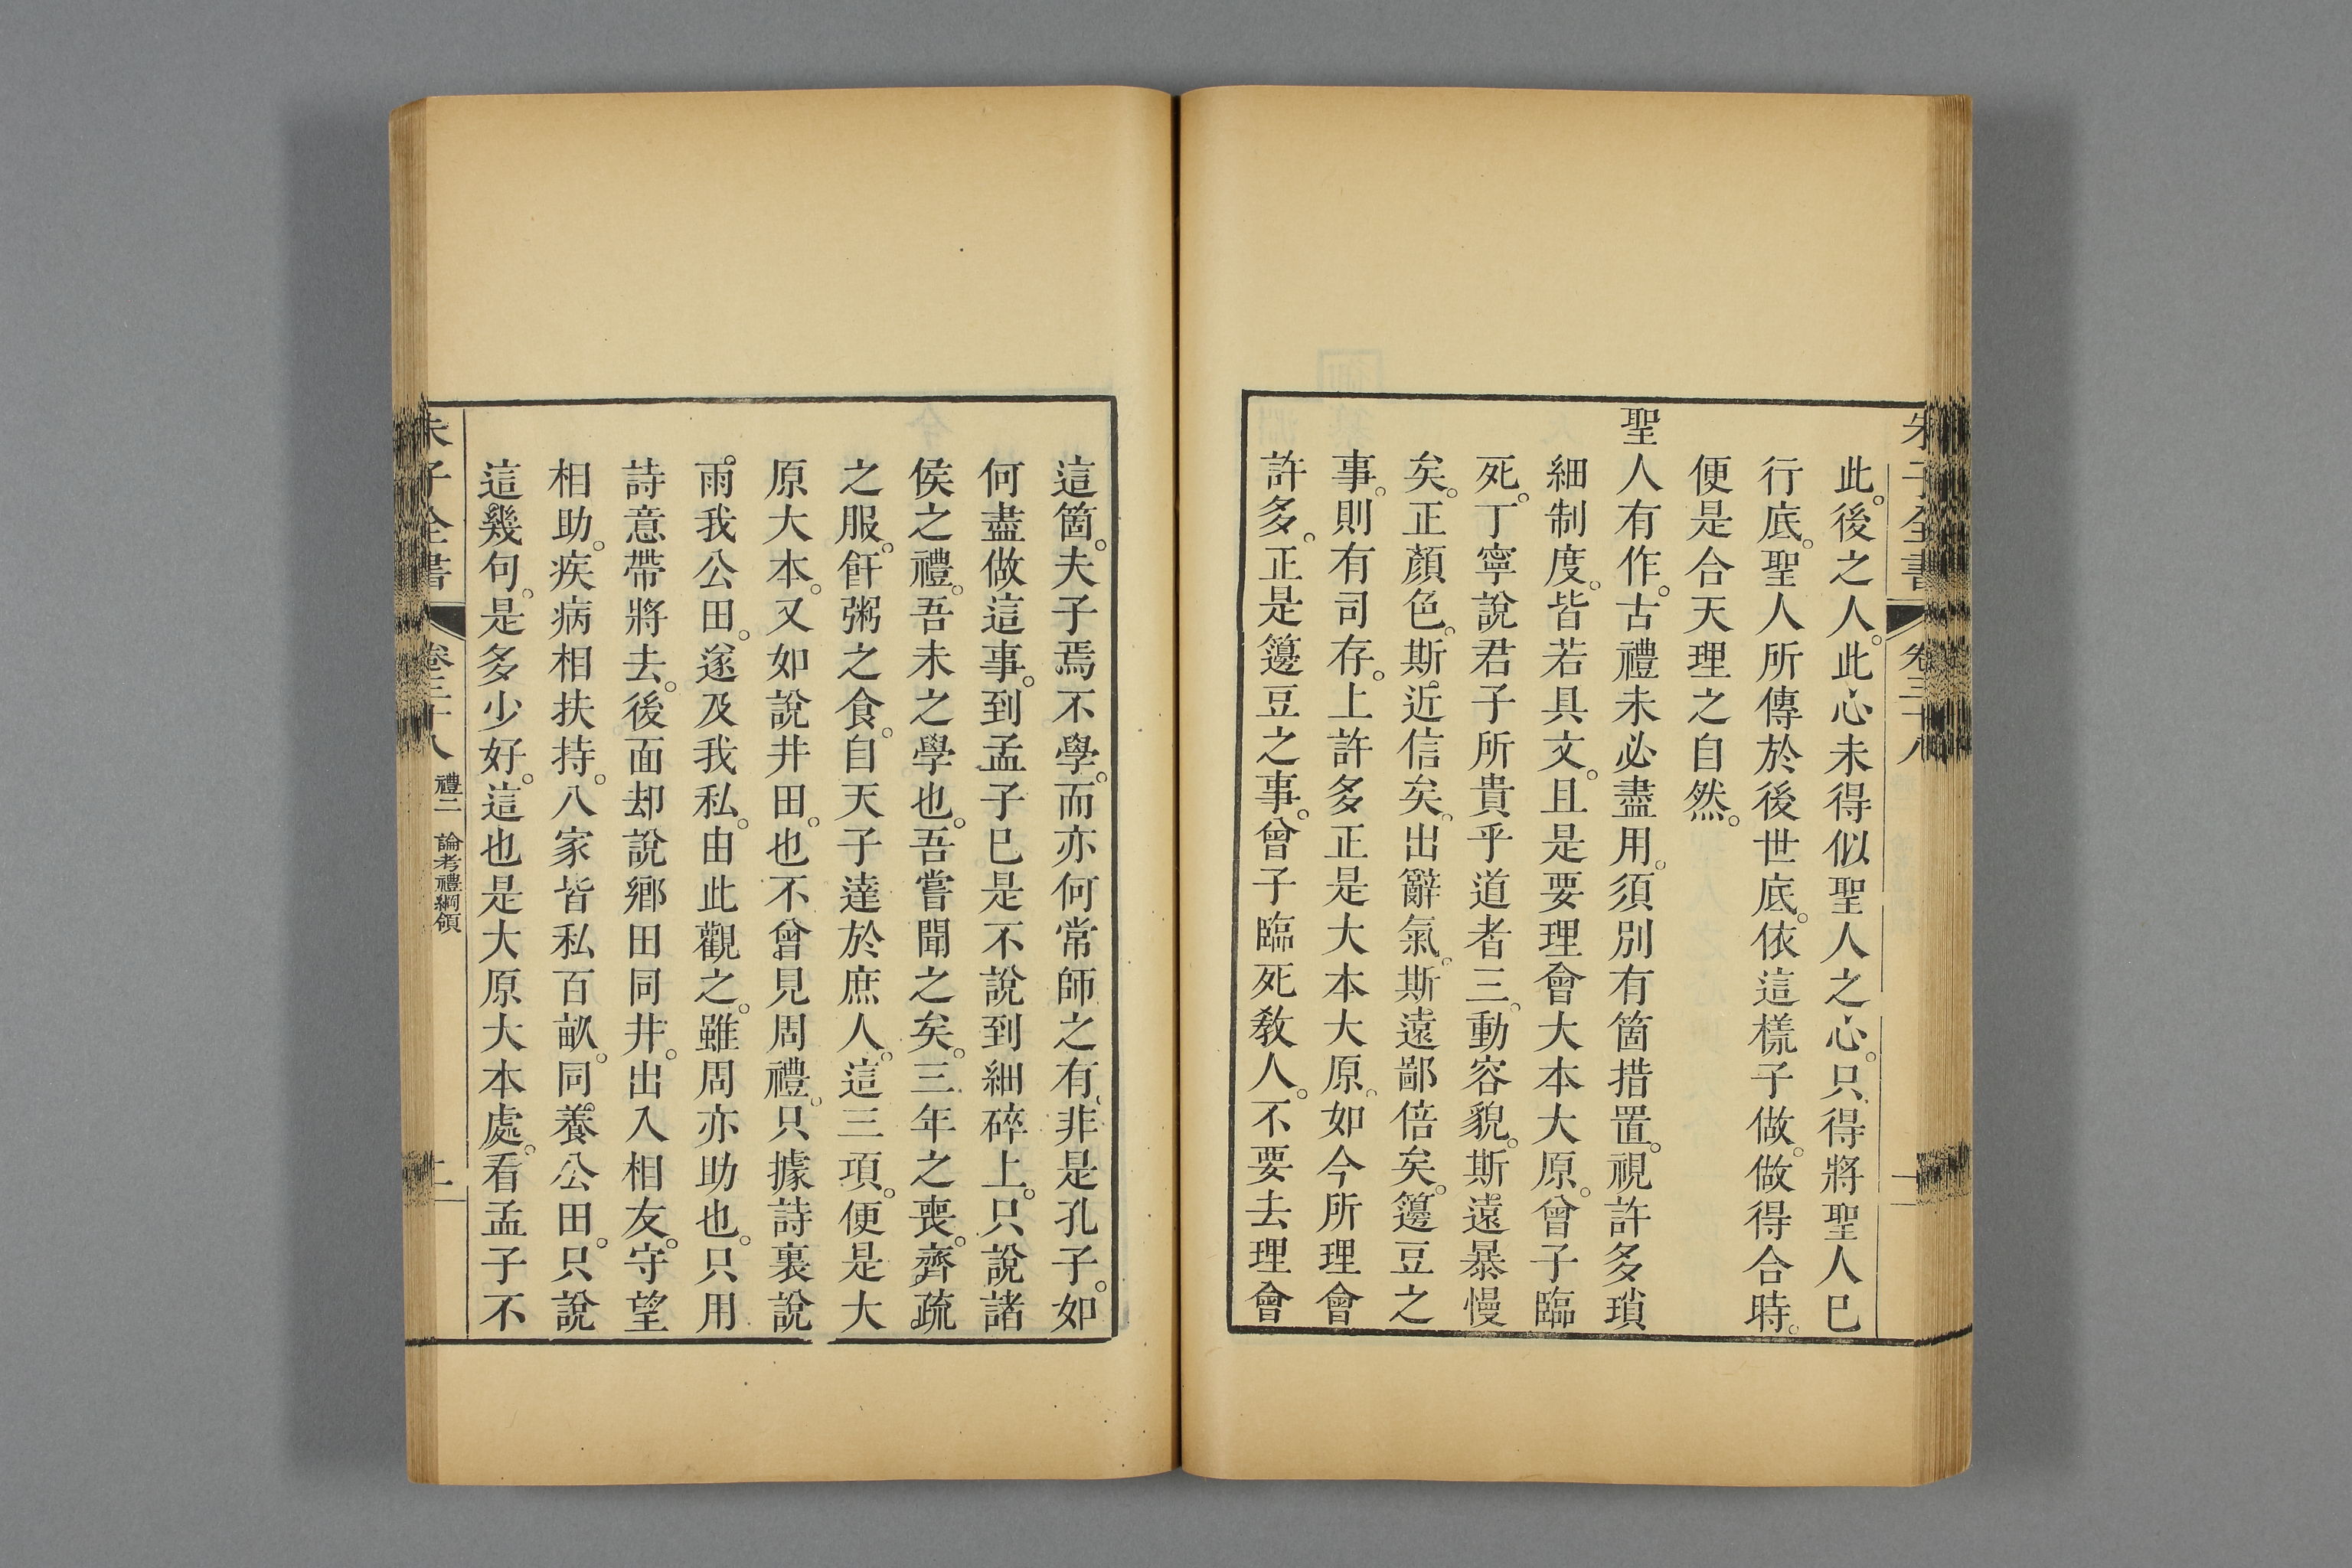 此。後之人。此心未得似聖人之心。只得將聖人已
行底。聖人所傳於後世底。依這樣子做。做得合時。
便是合天理之自然。
聖人有作。古禮未必盡用。須別有箇措置。視許多瑣
細制度。皆若具文。且是要理會大本大原。曾子臨
死。丁寧說君子所貴乎道者三。動容貌。斯遠暴慢
矣。正顏色。斯近信矣。出辭氣。斯遠鄙倍矣。籩豆之
事。則有司存。上許多正是大本大原。如今所理會
許多。正是籩豆之事。曾子臨死敎人。不要去理會
這箇。夫子焉不學。而亦何常師之有。非是孔子。如
何盡做這事。到孟子已是不說到細碎上。只說諸
侯之禮。吾未之學也。吾嘗聞之矣。三年之喪。齊疏
之服。飦粥之食。自天子達於庶人。這三項。便是大
原大本。又如說井田。也不曾見周禮。只據詩裏說
雨我公田。遂及我私。由此觀之。雖周亦助也。只用
詩意帶將去。後面却說鄉田同井。出入相友。守望
相助。疾病相扶持。八家皆私百畝。同養公田。只說
這幾句。是多少好。這也是大原大本處。看孟子不
朱子全書 卷三十八 禮二 論考禮綱領 二